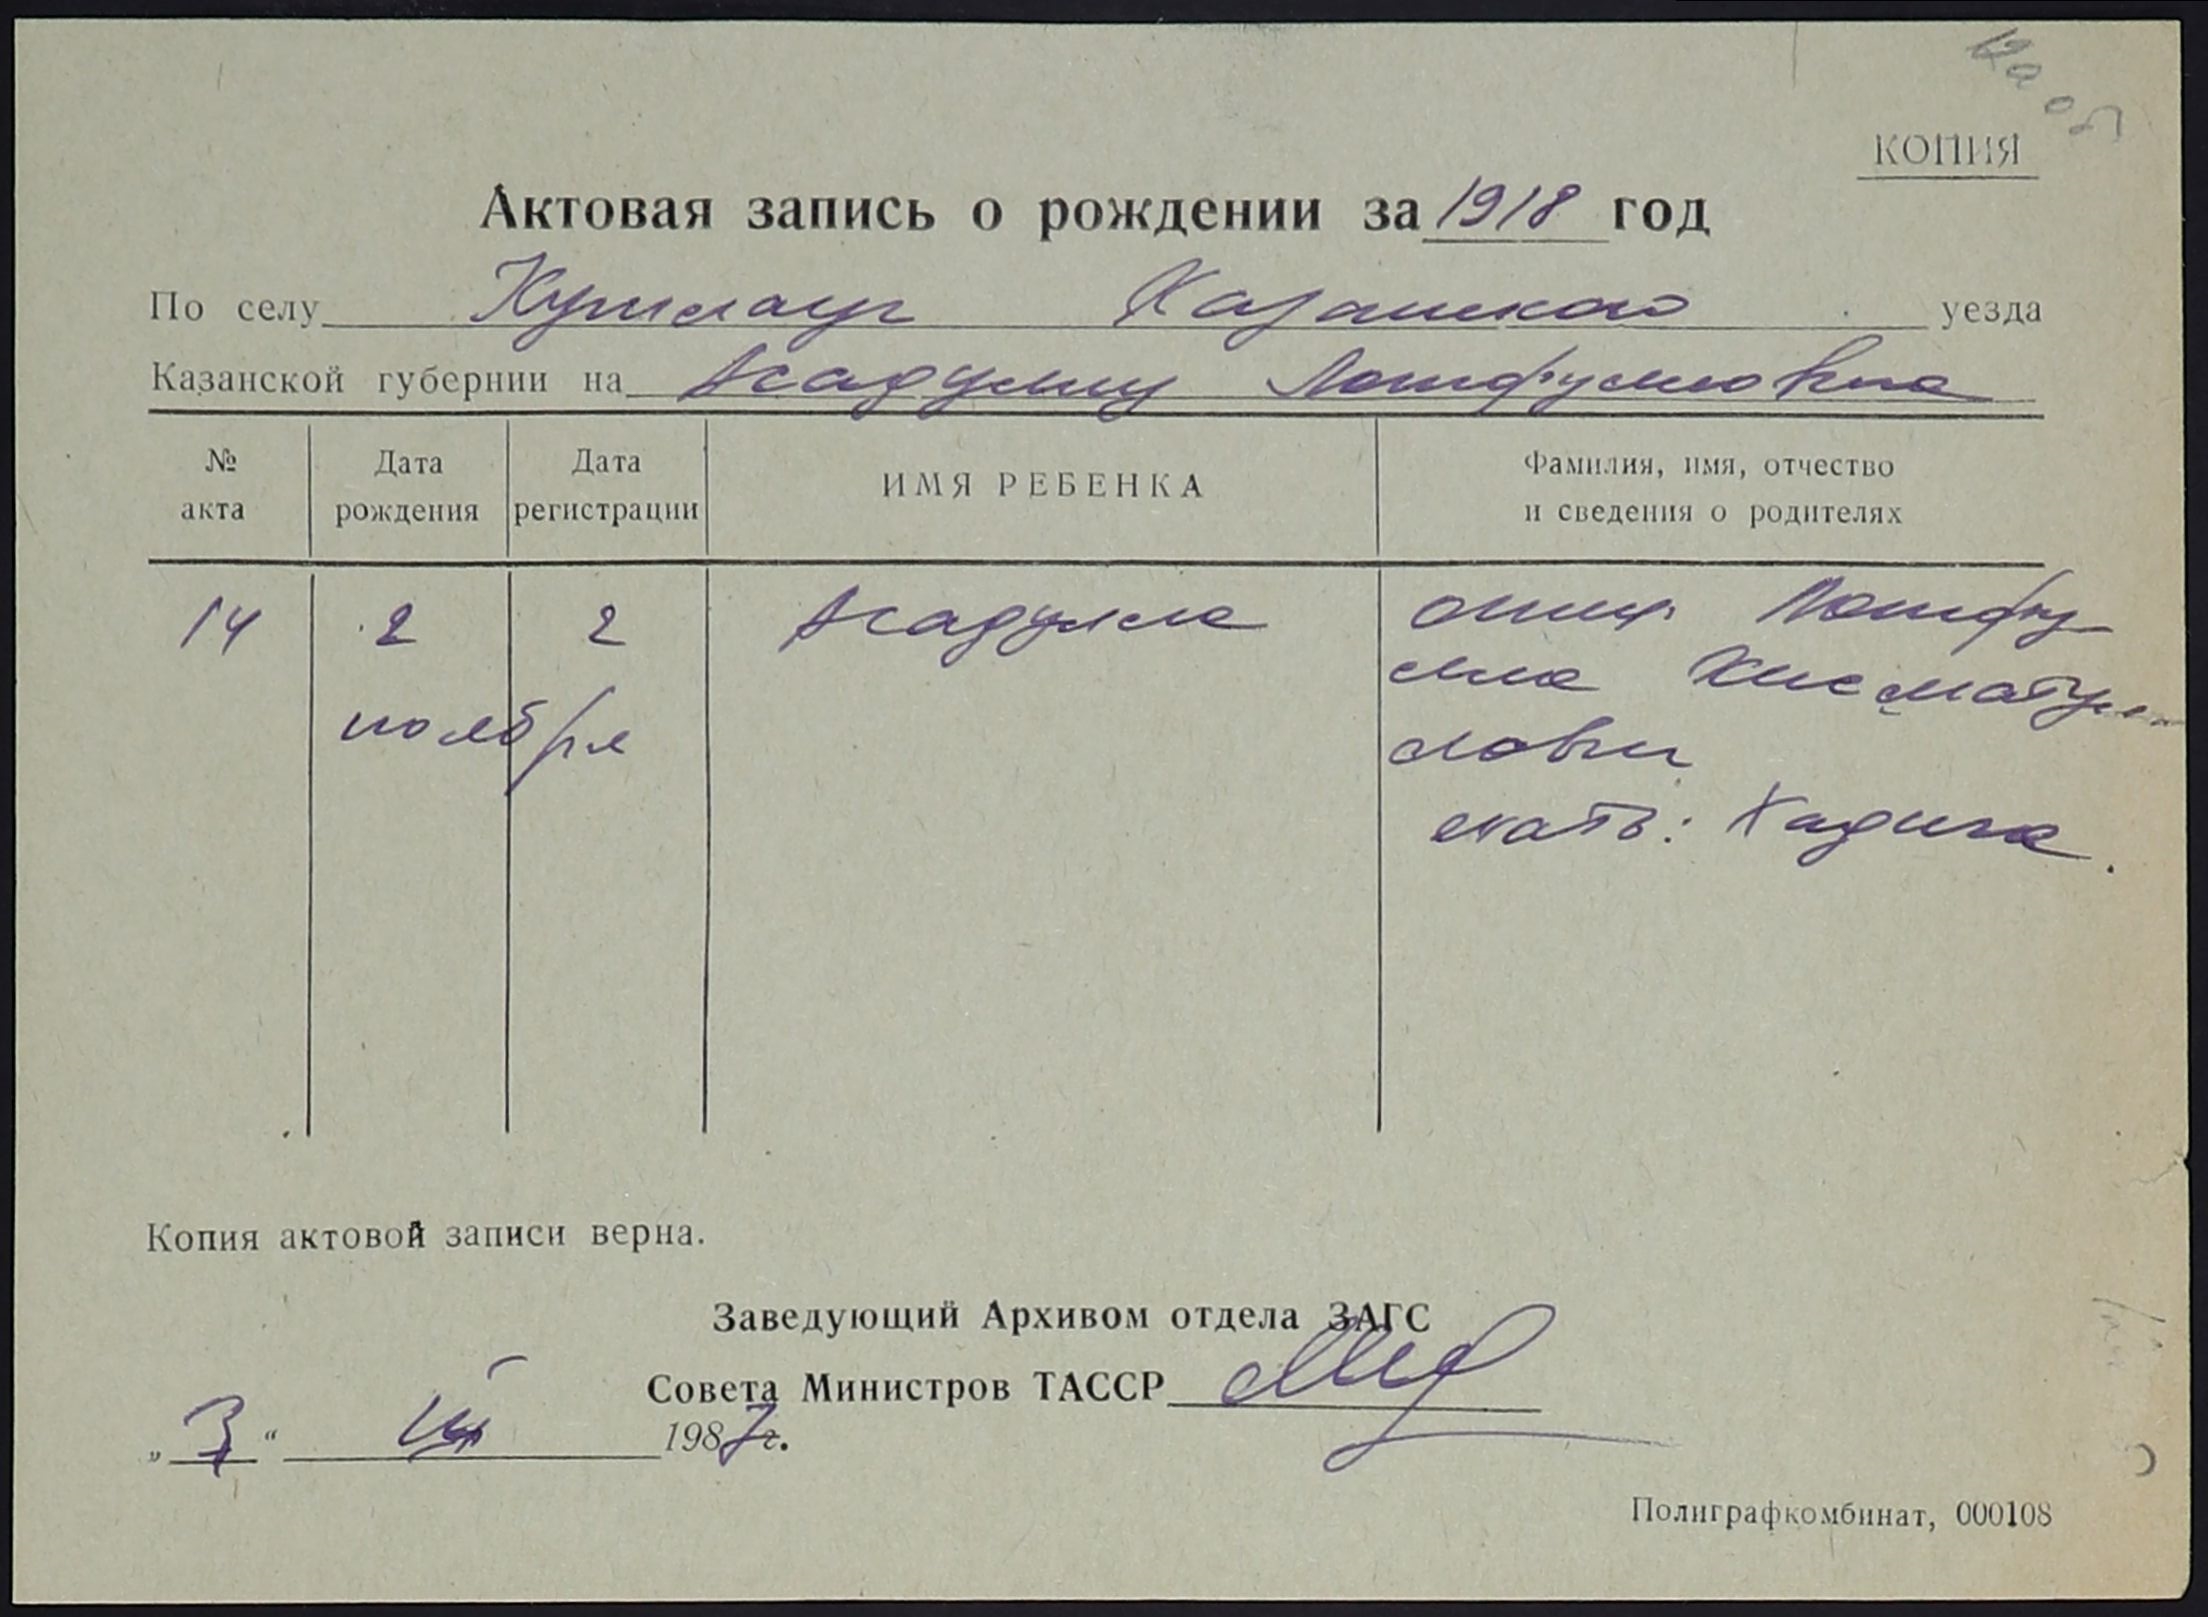 КОПИЯ
Актовая запись о рождении за 1918 год
По селу Кушлауч Казанского уезда
Казанской губернии на Асадуллу Лотфулловна
№ акта
Дата рождения
Дата регистрации
ИМЯ РЕБЕНКА
Фамилия, имя, отчество и сведения о родителях
14 2 2 Асадулла отец Лотфу
ноября
лла Хисматул
лович
мать: Хадича.
Копия актовой записи верна.
Заведующий Архивом отдела ЗАГС
Совета Министров ТАССР
„3“ 1987г.
Полиграфкомбинат, 000108